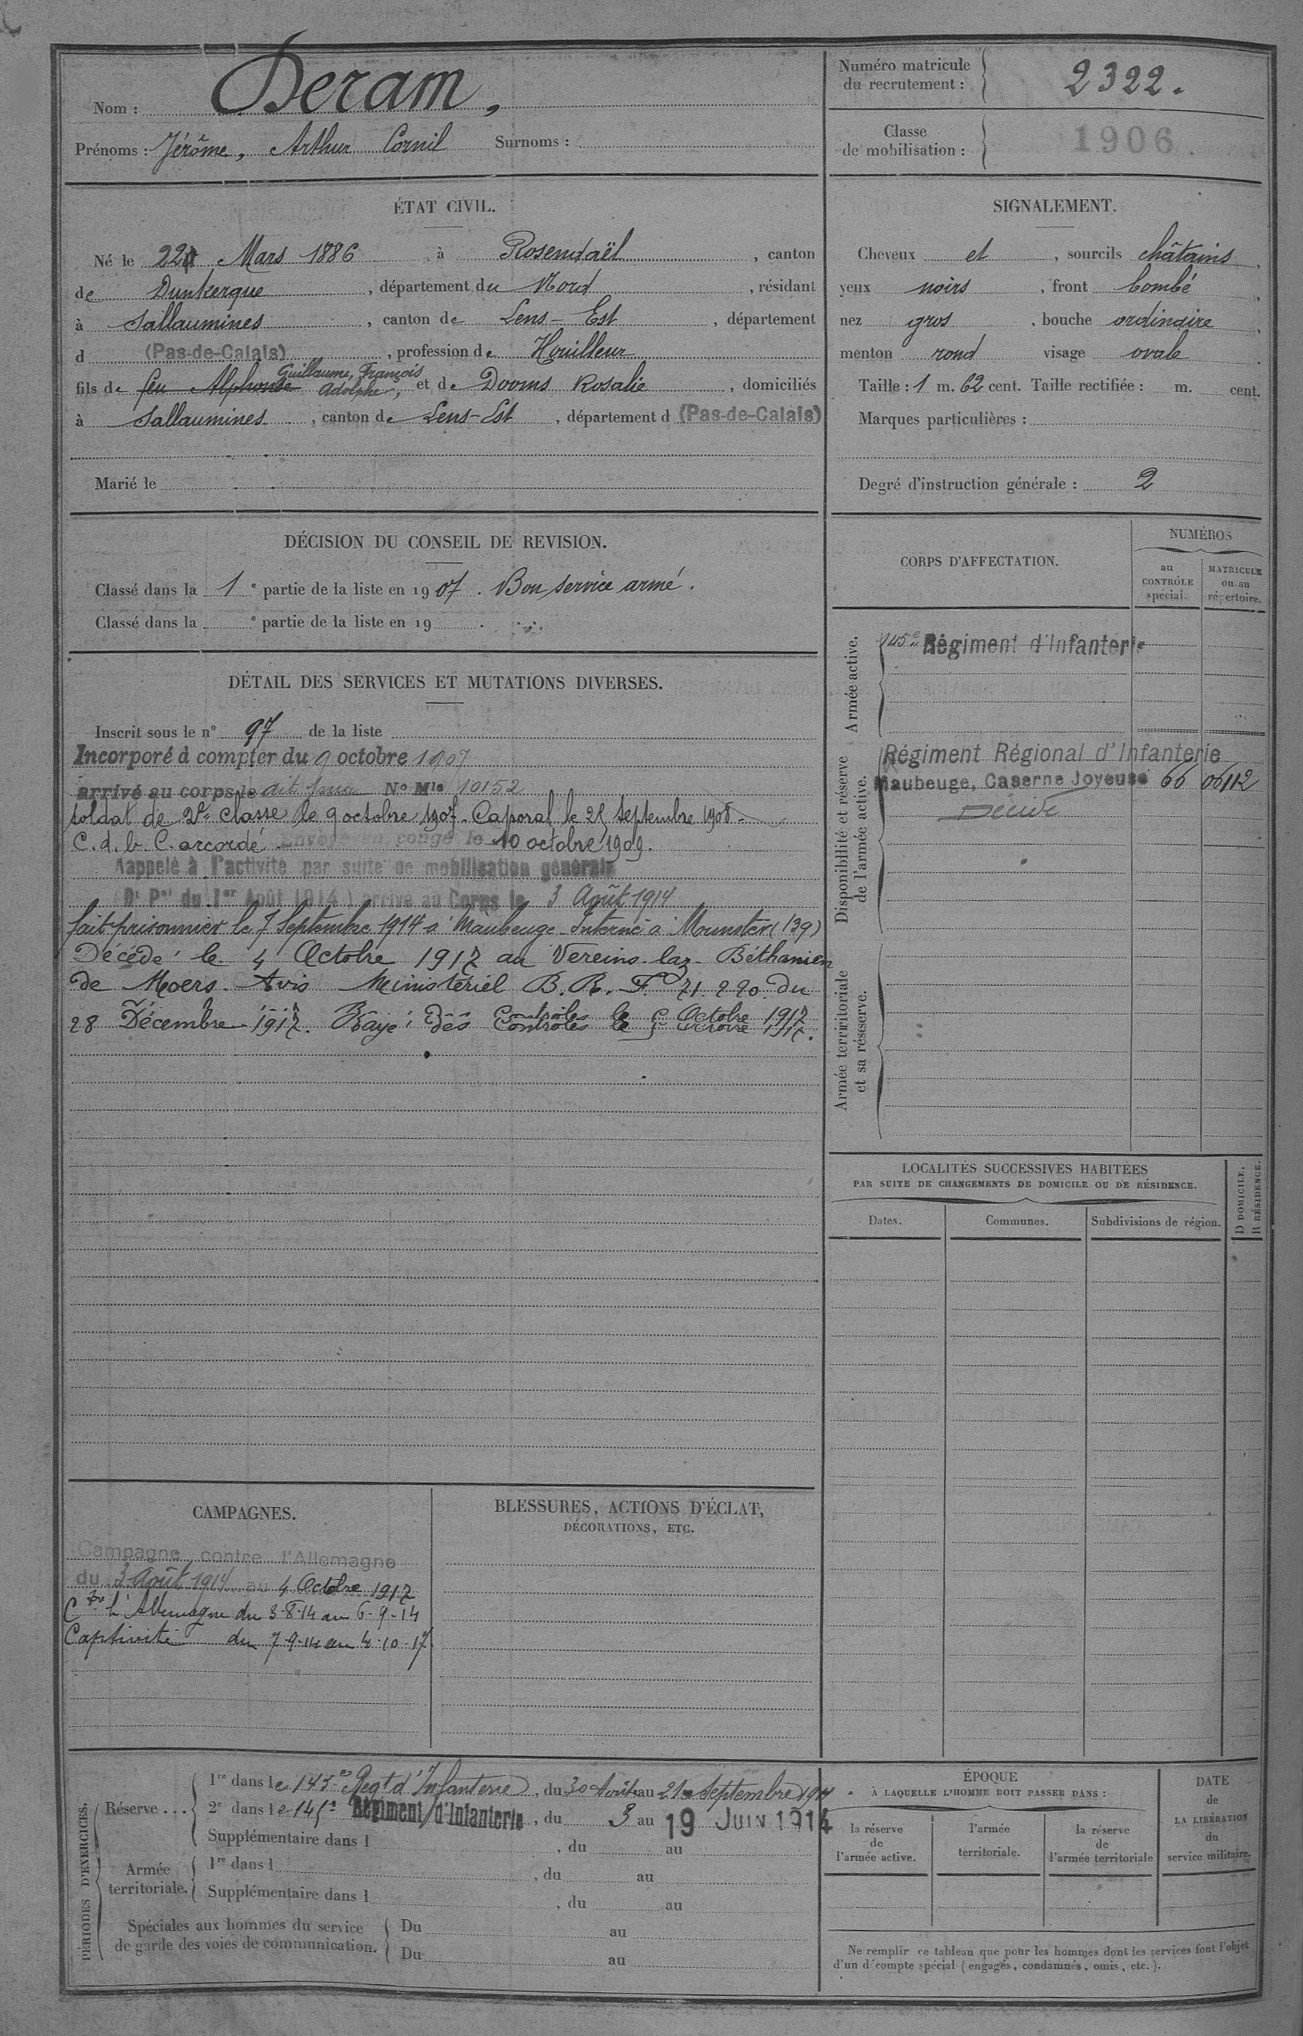 Nom : Deram,
Prénoms : Jérôme, Arthur Cornil Surnoms :
Numéro matricule du recrutement : 2322.
Classe de mobilisation : 1906.
ÉTAT CIVIL.
Né le 22 Mars 1886, à Rosendaël, canton
de Dunkerque, département du Nord, résidant
à Sallaumines, canton de Lens-Est, département
d (Pas-de-Calais), profession de Houilleur
Guillaume, François
fils de feu Alphonse Adolphe, et de Dooms Rosalie, domiciliés
à Sallaumines, canton de Lens-Est, département d (Pas-de-Calais)
Marié le
SIGNALEMENT.
Cheveux et, sourcils châtains,
yeux noirs, front bombé,
nez gros, bouche ordinaire,
menton rond visage ovale.
Taille : 1 m. 62 cent. Taille rectifiée : m. cent.
Marques particulières :
Degré d'instruction générale : 2
DÉCISION DU CONSEIL DE REVISION.
Classé dans la 1e partie de la liste en 1907. Bon service armé.
Classé dans la e partie de la liste en 19 .
DÉTAIL DES SERVICES ET MUTATIONS DIVERSES.
Inscrit sous le n° 97 de la liste
Incorporé à compter du 9 octobre 1907
arrivé au corps le dit jour No Mle 10152
soldat de 2e classe le 9 octobre 1907. Caporal le 25 septembre 1908.
C. d. b. C. accordé Envoyé en congé le 10 octobre 1909.
Rappelé à l'activité par suite de mobilisation générale
(Dt Pel du 1er Août 1914) arrivé au Corps le 3 Août 1914
fait prisonnier le 7 Septembre 1914 à Maubeuge Interné à Munster (139)
Décédé le 4 Octobre 1917 au Vereins-laz- Béthanien
de Moers. Avis Ministériel B.R.F. 71.220 du
28 Décembre 1917. Rayé des Contrôles le 5 Octobre 1917.
CORPS D'AFFECTATION.
NUMÉROS
au CONTRÔLE spécial.
MATRICULE ou au répertoire.
Armée active.
145e Régiment d'Infanterie
Disponibilité et réserve de l'armée active.
Régiment Régional d'Infanterie
Maubeuge, Caserne Joyeuse 66 06112
Décédé
Armée territoriale et sa réserve.
LOCALITÉS SUCCESSIVES HABITÉES
PAR SUITE DE CHANGEMENTS DE DOMICILE OU DE RÉSIDENCE.
Dates. Communes. Subdivisions de région.
D DOMICILE.
R RÉSIDENCE.
CAMPAGNES.
Campagne contre l'Allemagne
du 3 Août 1914 au 4 Octobre 1917
Ctre l'Allemagne du 3-8-14 au 6-9-14
Captivité du 7-9-14 au 4-10-17
BLESSURES, ACTIONS D'ÉCLAT,
DÉCORATIONS, ETC.
PÉRIODES D'EXERCICES.
Réserve ...
1re dans le 145e Regt d'Infanterie, du 30 Août au 21 Septembre 1911
2e dans le 145e Régiment d'Infanterie, du 3 au 19 JUIN 1914
Supplémentaire dans l , du au
Armée territoriale.
1re dans l , du au
Supplémentaire dans l , du au
Spéciales aux hommes du service
de garde des voies de communication.
Du au
Du au
ÉPOQUE
À LAQUELLE L'HOMME DOIT PASSER DANS :
la réserve de l'armée active.
l'armée territoriale.
la réserve de l'armée territoriale
DATE de LA LIBÉRATION du service militaire.
Ne remplir ce tableau que pour les hommes dont les services font l'objet
d'un décompte spécial (engagés, condamnés, omis, etc.).